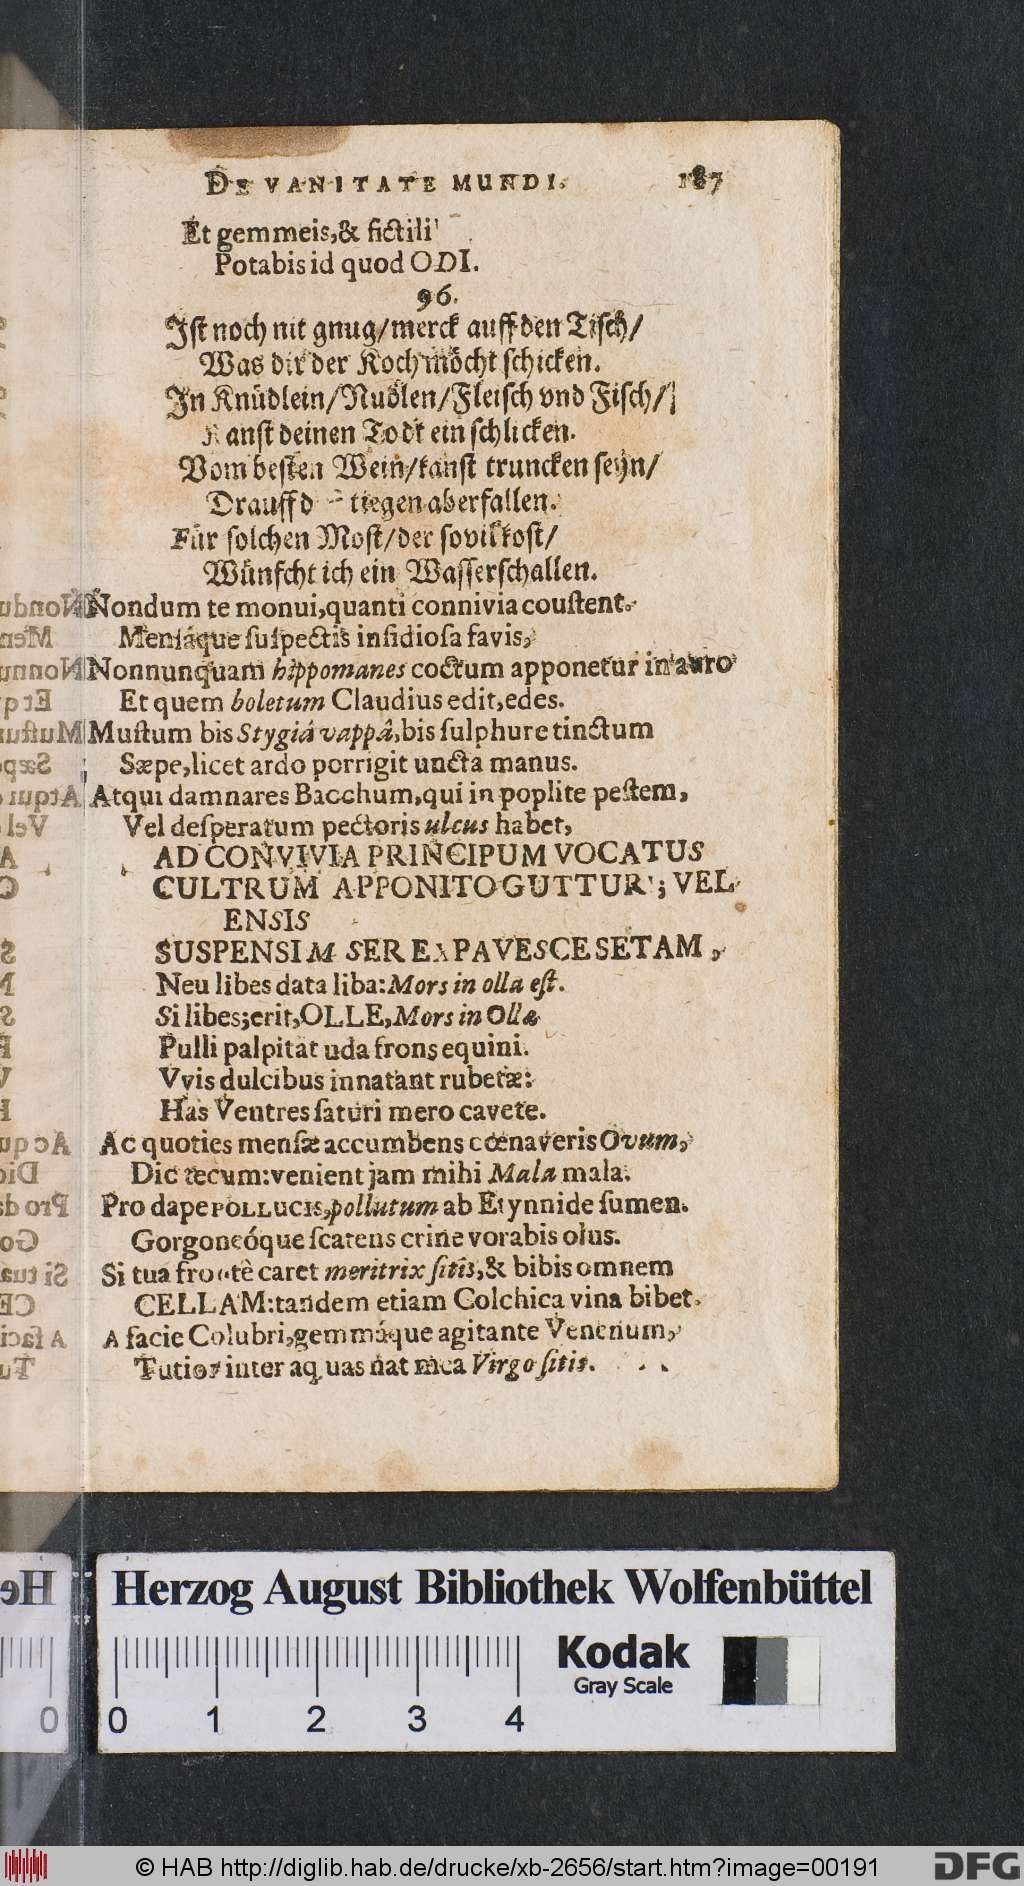 DE VANITATE MUNDI. 187
Et gemmeis,& fictili
Potabis id quod ODI.
96.
Ist noch nit gnug/merck auff den Tisch/
Was dir der Koch möcht schicken.
In Knüdlein/Nudlen/Fleisch vnd Fisch/
Kanst deinen Todt einschlicken.
Vom besten Wein/kanst truncken seyn/
Drauff d tiegen aber fallen.
Für solchen Most/der sovil kost/
Wünscht ich ein Wasserschallen.
Nondum te monui,quanti connivia coustent.
Mensáque suspectis insidiosa favis,
Nonnunquam hippomanes coctum apponetur in auro
Et quem boletum Claudius edit,edes.
Mustum bis Stygiá vappâ,bis sulphure tinctum
Sæpe,licet ardo porrigit uncta manus.
Atqui damnares Bacchum,qui in poplite pestem,
Vel desperatum pectoris ulcus habet,
AD CONVIVIA PRINCIPUM VOCATUS
CULTRUM APPONITO GUTTURI; VEL
ENSIS
SUSPENSIM SER EXPAVESCE SETAM,
Neu libes data liba:Mors in olla est.
Si libes;erit,OLLE,Mors in Olla
Pulli palpitat uda frons equini.
Vvis dulcibus innatant rubetæ:
Has Ventres saturi mero cavete.
Ac quoties mensæ accumbens cœnaveris Ovum,
Dic tecum:venient jam mihi Mala mala.
Pro dape POLLUCIS,pollutum ab Erynnide sumen.
Gorgoneóque scatens crine vorabis olus.
Si tua frontè caret meritrix sitis,& bibis omnem
CELLAM:tandem etiam Colchica vina bibet.
A facie Colubri,gemmáque agitante Venenum,
Tutior inter aquas nat mea Virgo sitis.
Herzog August Bibliothek Wolfenbüttel
Kodak
Gray Scale
0 0 1 2 3 4
© HAB http://diglib.hab.de/drucke/xb-2656/start.htm?image=00191
DFG